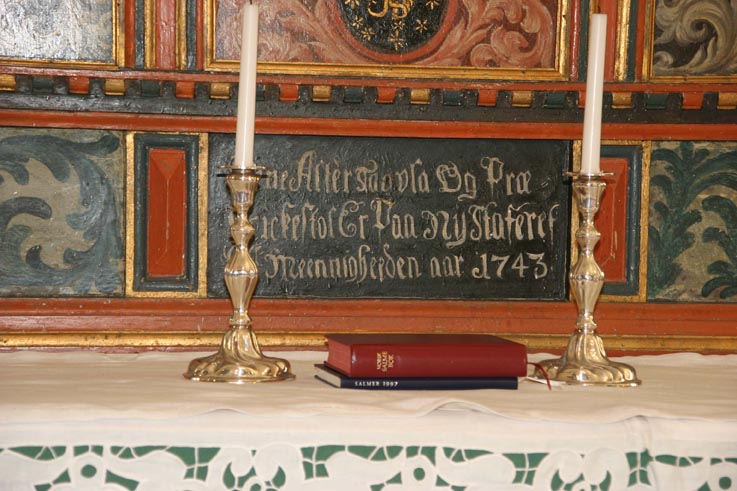 ne Altertavla Og Præ
ickestol Er Paa Ny Staferet
Meenigheeden aar 1743
NORSK
SALME
BOK
SALMER 1997